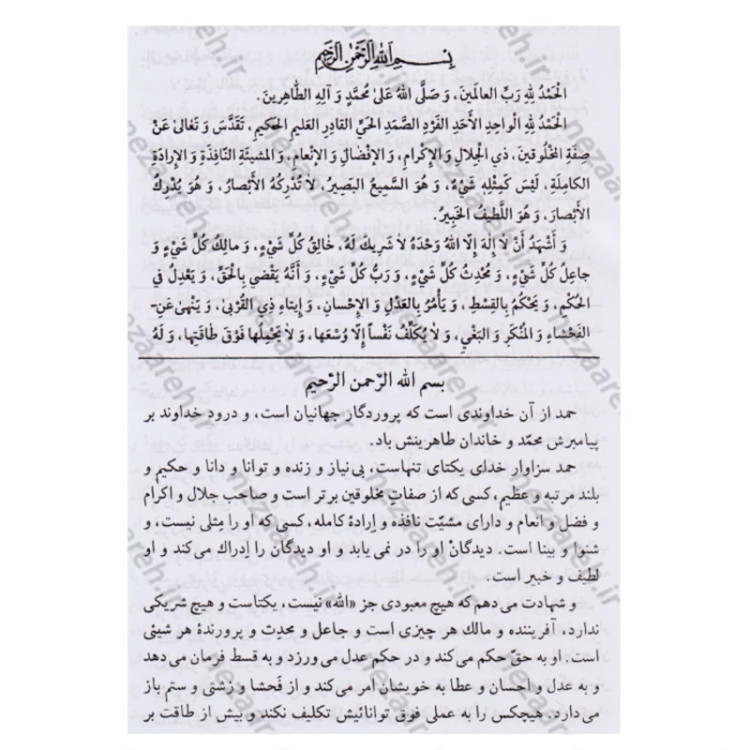 بِسْمِ اللهِ الرَّحْمٰنِ الرَّحِيمِ
الحَمْدُ لِلّٰهِ رَبِّ العالَمينَ، وَ صَلَّى اللهُ عَلىٰ مُحَمَّدٍ وَ آلِهِ الطّاهِرينَ.
الحَمْدُ لِلّٰهِ الْواحِدِ الأَحَدِ الفَرْدِ الصَّمَدِ الحَيِّ القادِرِ العَليمِ الحَكيمِ، تَقَدَّسَ وَ تَعالىٰ عَنْ
صِفَةِ المَخْلُوقينَ، ذي الجَلالِ وَ الإكْرامِ، وَ الإفْضالِ وَ الإنْعامِ، وَ المَشيئَةِ النّافِذَةِ وَ الإرادَةِ
الكامِلَةِ، لَيْسَ كَمِثْلِهِ شَيْءٌ، وَ هُوَ السَّميعُ البَصيرُ، لا تُدْرِكُهُ الأَبْصارُ، وَ هُوَ يُدْرِكُ
الأَبْصارَ، وَ هُوَ اللَّطيفُ الخَبيرُ.
وَ أَشْهَدُ أَنْ لا إلهَ إلّا اللهُ وَحْدَهُ لا شَريكَ لَهُ، خالِقُ كُلِّ شَيْءٍ، وَ مالِكُ كُلِّ شَيْءٍ وَ
جاعِلُ كُلِّ شَيْءٍ، وَ مُحْدِثُ كُلِّ شَيْءٍ، وَ رَبُّ كُلِّ شَيْءٍ، وَ أَنَّهُ يَقْضي بِالْحَقِّ، وَ يَعْدِلُ فِي
الحُكْمِ، وَ يَحْكُمُ بِالقِسْطِ، وَ يَأْمُرُ بِالعَدْلِ وَ الإحْسانِ، وَ إيتاءِ ذِي القُرْبىٰ، وَ يَنْهىٰ عَنِ
الفَحْشاءِ وَ المُنْكَرِ وَ البَغْيِ، وَ لا يُكَلِّفُ نَفْساً إلّا وُسْعَها، وَ لا يُحَمِّلُها فَوْقَ طاقَتِها، وَ لَهُ
بسم الله الرّحمن الرّحيم
حمد از آن خداوندی است که پروردگار جهانیان است، و درود خداوند بر
پیامبرش محمّد و خاندان طاهرینش باد.
حمد سزاوار خدای یکتای تنهاست، بی‌نیاز و زنده و توانا و دانا و حکیم و
بلند مرتبه و عظیم، کسی که از صفات مخلوقین برتر است و صاحب جلال و اکرام
و فضل و انعام و دارای مشیّت نافذه و إرادهٔ کامله، کسی که او را مِثلی نیست، و
شنوا و بینا است. دیدگانْ او را در نمی یابد و او دیدگان را إدراك می‌کند و او
لطیف و خبیر است.
و شهادت می‌دهم که هیچ معبودی جز «الله» نیست، یکتاست و هیچ شریکی
ندارد، آفریننده و مالك هر چیزی است و جاعل و محدِث و پرورندهٔ هر شیئی
است. او به حقّ حکم می‌کند و در حکم عدل می ورزد و به قسط فرمان می‌دهد
و به عدل و احسان و عطا به خویشان امر می‌کند و از فَحشا و زشتی و ستم باز
می‌دارد. هیچکس را به عملی فوق توانائیش تکلیف نکند و بیش از طاقت بر
nezaareh.ir